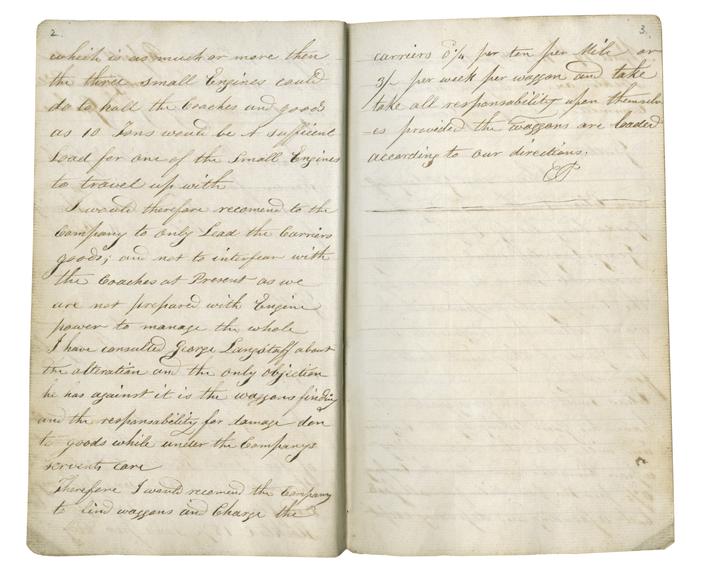 2.
which is as much or more then
the three small Engines could
do to hall the Coaches and goods
as 10 Tons would be A sufficient
Load for one of the Small Engines
to travel up with
I would therefore recomend to the
Company to only Lead the Carriers
goods; and not to interfear with
the Coaches at Present as we
are not prepared with Engine
power to manage the whole
I have consulted George Langstaff about
the alteration and the only objection
he has against it is the waggons finding
and the responsability for damage don
to goods while under the Companys
servents care
Therefore I would recomend the Company
to find waggons and Charge the
3.
carriers per ton per Mile or
3/- per week per waggon and take
take all responsability upon themselv
es provided the waggons are loaded
according to our directions.